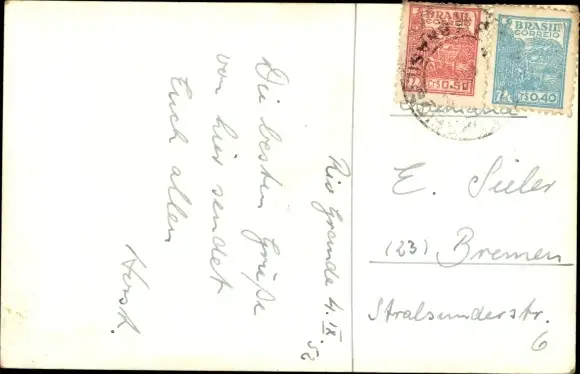 Rio Grande 4.IX.52
Die besten Grüße
von hier sendet
Euch allen
Horst.
BRASIL
CORREIO
CR$0.50
BRASIL
CORREIO
CR$0.40
E. Sieler
(23) Bremen
Stralsunderstr.
6